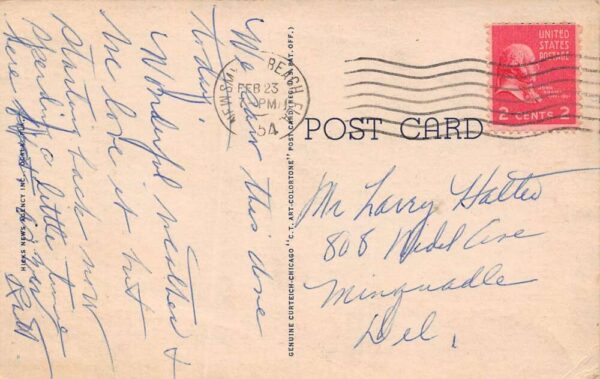 We saw this one
today.
Wonderful weather &
we love it but
starting back now
spending a little time
here
UNITED
STATES
POSTAGE
2 CENTS 2
NEW SMYRNA BEACH FLA
FEB 23
PM
54
POST CARD
Mr Larry
808 Ave
Minquadle
Del,
GENUINE CURTEICH-CHICAGO "C.T. ART-COLORTONE" POST CARD (REG. U.S. PAT. OFF.)
HICKS NEWS AGENCY INC.